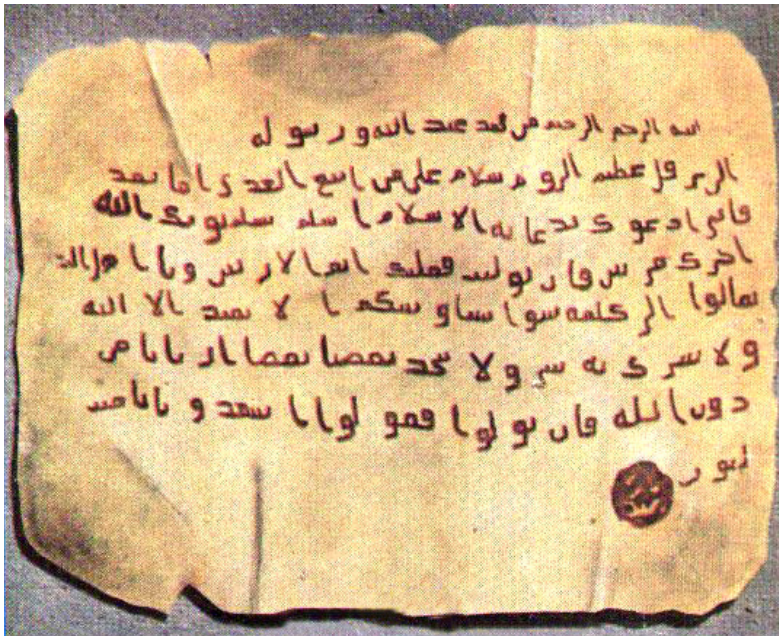 بسم الله الرحمن الرحيم من محمد عبد الله ورسوله
الى هرقل عظيم الروم سلام على من اتبع الهدى اما بعد
فانى ادعوك بدعاية الاسلام اسلم تسلم يوتك الله
اجرك مرتين فان توليت فعليك اثم الاريسين ويا اهل
تعالوا الى كلمة سوا بيننا وبينكم ا لا نعبد الا الله
ولا نشرك به ولا يتخذ بعضنا بعضا اربابا من
دون الله فان تولوا فقولوا اشهدوا بانا